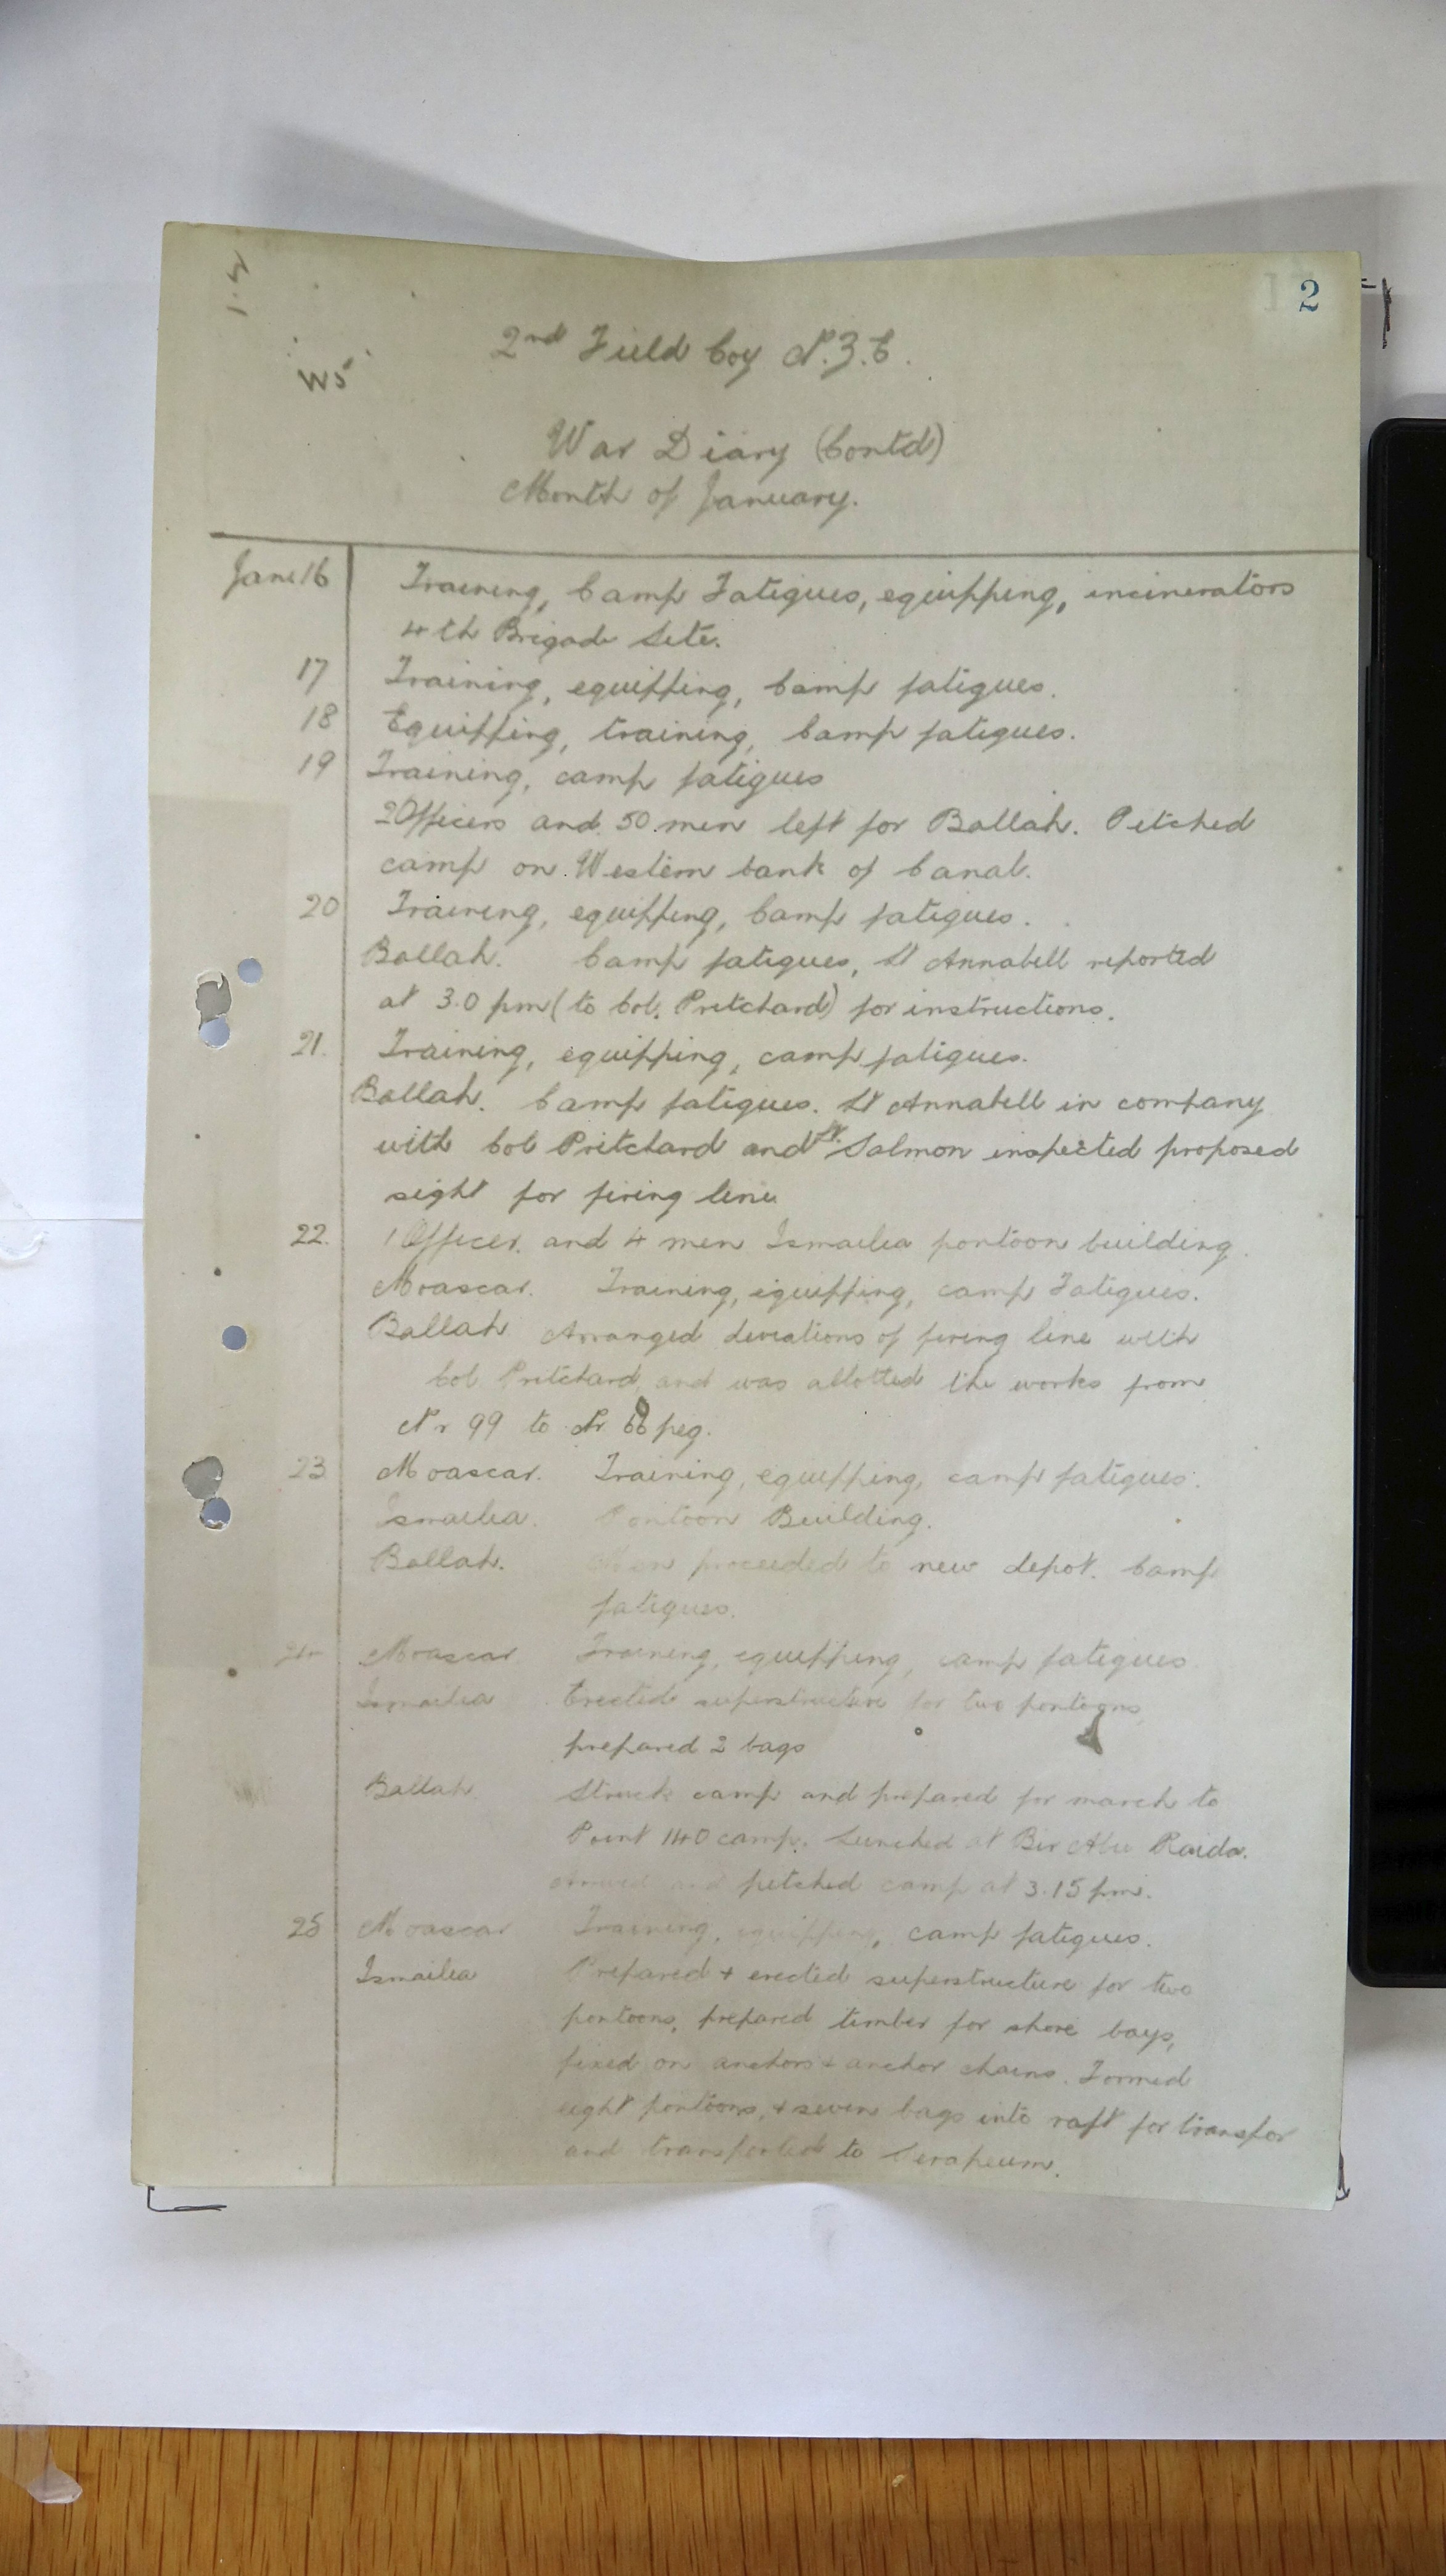 2
W5
2nd Field Coy N.Z.E.
War Diary (Contd)
Month of January.
Jan 16 Training, Camp Fatigues, equipping, incinerators
4th Brigade Site.
17 Training, equipping, Camp fatigues.
18 Equipping, training, Camp fatigues.
19 Training, camp fatigues
2 Officers and 50 men left for Ballah. Pitched
camp on Western bank of Canal.
20 Training, equipping, Camp fatigues.
Ballah. Camp fatigues, Lt Annabell reported
at 3.0 pm (to Col. Pritchard) for instructions.
21. Training, equipping, camp fatigues.
Ballah. Camp fatigues. Lt Annabell in company
with Col Pritchard and Lt. Salmon inspected proposed
sight for firing line
22. 1 Officer. and 4 men Ismailia pontoon building.
Moascar. Training, equipping, camp Fatigues.
Ballah Arranged deviations of firing line with
Col Pritchard and was allotted the works from
Nr 99 to Nr peg.
23 Moascar. Training, equipping, camp fatigues.
Ismailia. Pontoon Building.
Ballah. Men proceeded to new depot. Camp
fatigues.
24 Moascar Training, equipping, camp fatigues
Ismailia Erected superstructure for two pontoons,
prepared 2 bags
Ballah Struck camp and prepared for march to
Point 140 camp. Lunched at Bir Abu Raida.
Arrived and pitched camp at 3.15 pm.
25 Moascar Training, equipping, camp fatigues.
Ismailia Prepared + erected superstructure for two
pontoons, prepared timber for shore bays,
fixed on anchors + anchor chains. Formed
eight pontoons, + seven bags into raft for transfor
and transported to Serapeum.